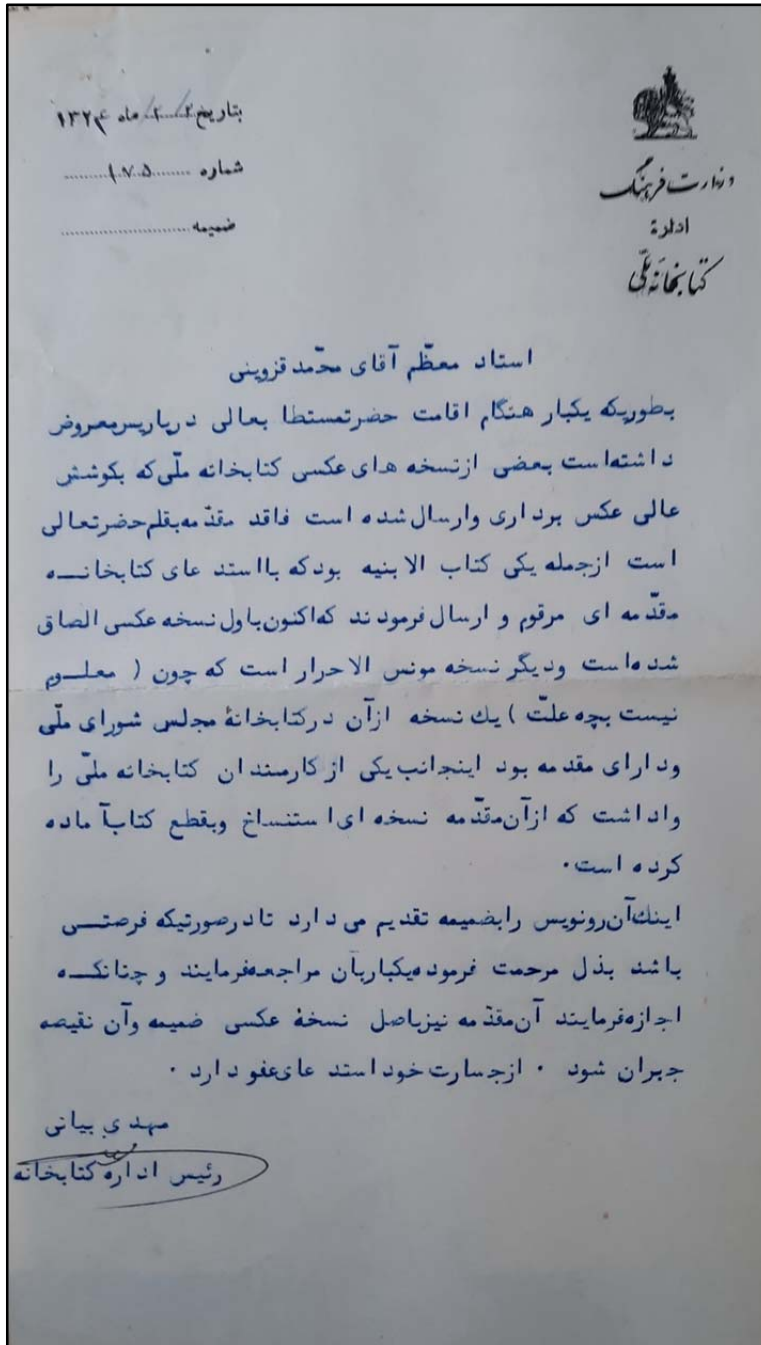 وزارت فرهنگ
ادارهٔ
کتابخانه ملّی
بتاریخ ۲/۲/ ماه ۱۳۲۴
شماره ۱۷۵
ضمیمه
استاد معظّم آقای محمّد قزوینی
بطوریکه یکبار هنگام اقامت حضرتمستطا بعالی درپاریس معروض
داشته‌است بعضی ازنسخه های عکسی کتابخانه ملّی که بکوشش
عالی عکس برداری وارسال شده است فاقد مقدّمه‌بقلم حضرتعالی
است ازجمله یکی کتاب الابنیه بودکه بااستد عای کتابخانـــه
مقدّمه ای مرقوم و ارسال فرمودند که‌اکنون باول نسخه عکسی الصاق
شده‌است ودیگر نسخه مونس الاحرار است که چون ( معلــوم
نیست بچه علّت ) یك نسخه ازآن درکتابخانهٔ مجلس شورای ملّی
ودارای مقدمه بود اینجانب یکی ازکارمندان کتابخانه ملّی را
واداشت که ازآن مقدّمه نسخه ای استنساخ وبقطع کتاب آماده
کرده است.
اینك آن رونویس رابضمیمه تقدیم می دارد تادرصورتیکه فرصتـــی
باشد بذل مرحمت فرموده یکباربآن مراجعه‌فرمایند و چنانکـــه
اجازه‌فرمایند آن مقدّمه نیزباصل نسخهٔ عکسی ضمیمه وآن نقیصه
جبران شود . ازجسارت خود استد عای عفو دارد .
مهدی بیانی
رئیس اداره کتابخانه